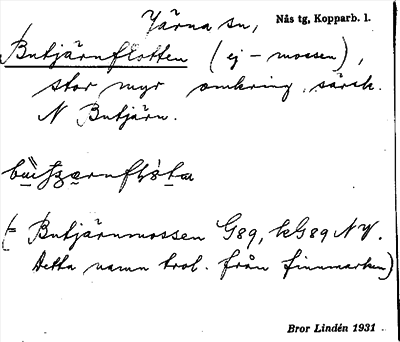 Järna sn, Nås tg, Kopparb. l.
Butjärnflotten (ej -mossen),
stor myr omkring, särsk.
N Butjärn.
(= Butjärnmossen G89, kG89 NV.
Detta namn trol. från finnmarken)
Bror Lindén 1931